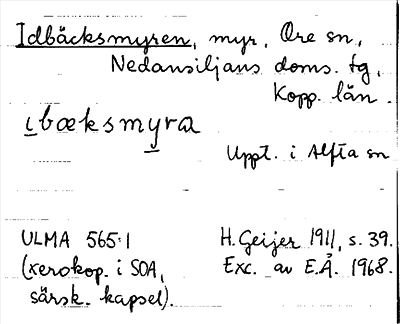 Idbäcksmyren, myr, Ore sn,
Nedansiljans doms. tg,
Kopp. län.
ɩbæksmyra
Uppt. i Alfta sn
ULMA 565:1
(xerokop. i SOA,
särsk. kapsel).
H. Geijer 1911, s. 39.
Exc. av E.Å. 1968.